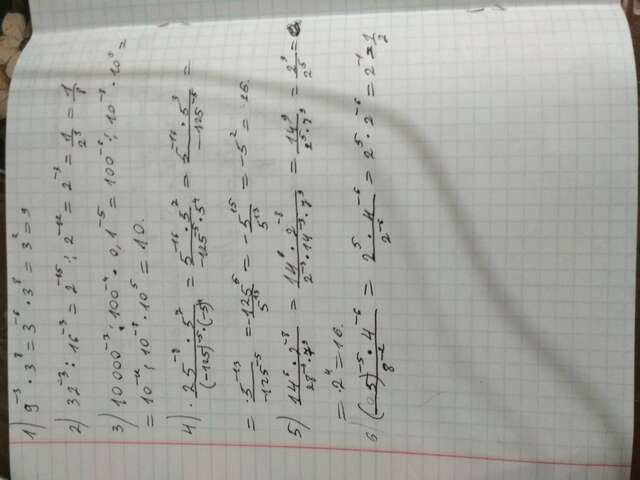 1) 9⁻³ · 3⁸ = 3⁻⁶ · 3⁸ = 3² = 9
2) 32⁻³ : 16⁻³ = 2⁻¹⁵ : 2⁻¹² = 2⁻³ = 1/2³ = 1/8
3) 10000⁻³ : 100⁻⁴ · 0,1⁻⁵ = 100⁻⁶ : 10⁻⁸ · 10⁵ =
= 10⁻¹² : 10⁻⁸ · 10⁵ = 10.
4) 25⁻⁸ · 5² / (-125)⁻⁵ · (-5)⁴ = 5⁻¹⁶ · 5² / -125⁻⁵ · 5⁴ = 5⁻¹⁶ · 5³ / -125⁻⁵ =
= 5⁻¹³ / -125⁻⁵ = -125⁵ / 5¹³ = - 5¹⁵ / 5¹³ = -5² = -25.
5) 14⁶ · 2⁻⁸ / 28⁻³ · 7⁹ = 14⁶ · 2⁻⁸ / 2⁻³ · 14⁻³ · 7⁹ = 14⁹ / 2⁵ · 7⁹ = 2⁹ / 2⁵ =
= 2⁴ = 16.
6) (0,5)⁻⁵ · 4⁻⁶ / 8⁻² = 2⁵ · 4⁻⁶ / 2⁻⁶ = 2⁵ · 2⁻⁶ = 2⁻¹ = 1/2